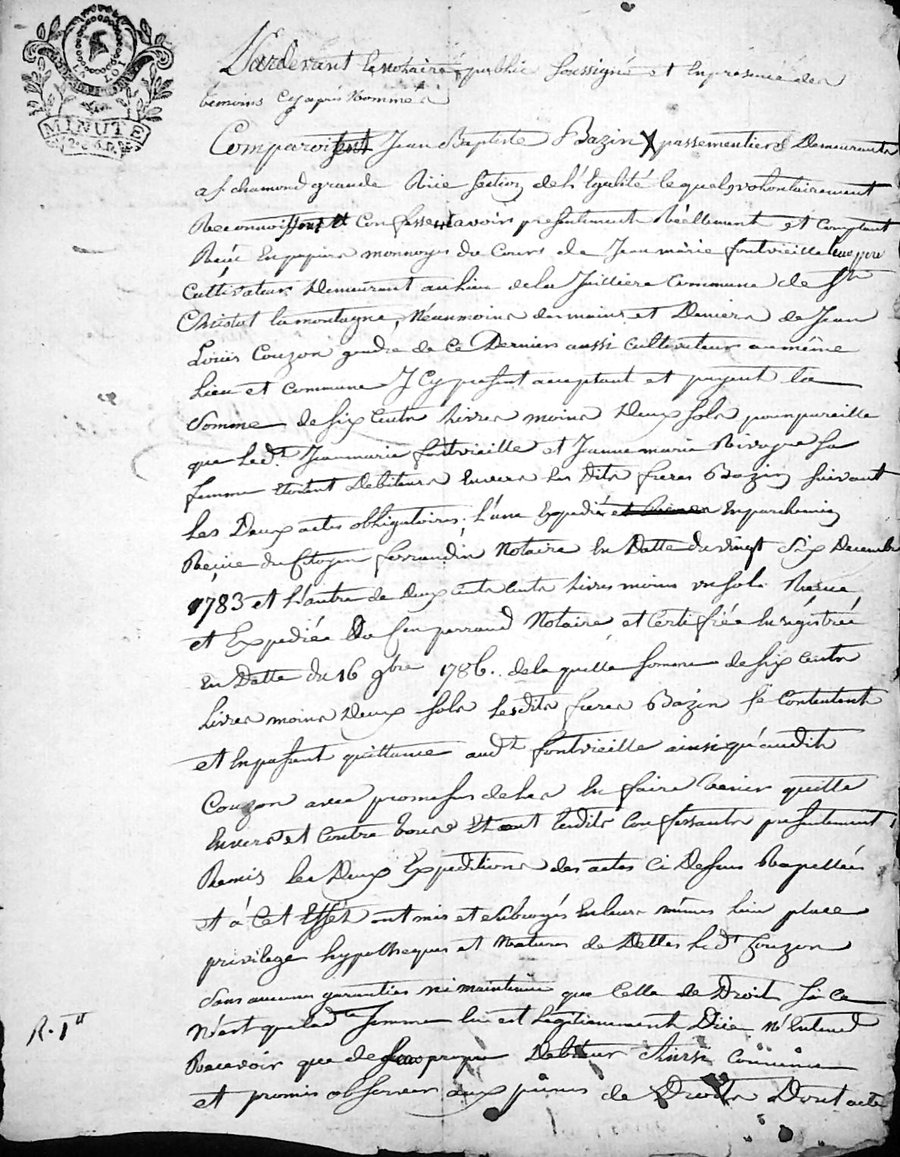 MINUTE
Pardevant le notaire public soussigné et en présence des
témoins cy après nommés
Comparoissent Jean Baptiste Bazin X passementiers Demeurants
a st chamond grande Rüe section de l'Egalité lequel volontairement
Reconnoissent et Confessent avoir presentement Réellement et Comptant
Recü en papier monnoye du Cours de Jean marie fontvieille
Cultivateur Demeurant au lieu de la Jullière Commune de st
Christol lamontagne, Néanmoins des mains et Deniers de Jean
Loüis Couzon gendre de ce Dernier aussi cultivateur au même
Lieu et Commune Icy present acceptant et payant la
Somme de six cents Livres moins Deux sols pour pareille
que led.t Jean marie fontvieille et Jeanne marie sa
femme étoient Debiteurs Envers les dits freres Bazin suivant
Les Deux actes obligatoires, l'une Expediée Enparchemin
Recüe du Citoyen ferrandin Notaire En Datte du vingt six Decembre
1783 et L'autre de cents Livres moins un sol Recue
et Expediée feu perraud Notaire et Certifiée Enregistrée
En Datte du 16 9bre 1786. de laquelle somme de six cents
Livres moins Deux sols lesdits freres Bazin se Contentent
et Enpassent quittance aud.t fontvieille ainsi qu'audit
Couzon avec promesse de les En faire tenir quitte
Envers et Contre tous Et ont lesdits Confessants presentement
Remis les Deux Expeditions des actes ci Dessus Rappellés
et à Cet Effet ont mis et subrogés En leurs mêmes lieu place
privilege hypotheques et Natures de Dettes led.t Couzon
Sans aucune garantie ni maintenüe que Celle de Droit si ce
N'est que lad.te somme lui est Legitimement Düe N'Entend
R. 1er
Recevoir que de son propre Debiteur Ainsi Convenu
et promis observer aux peines de Droits Dont acte